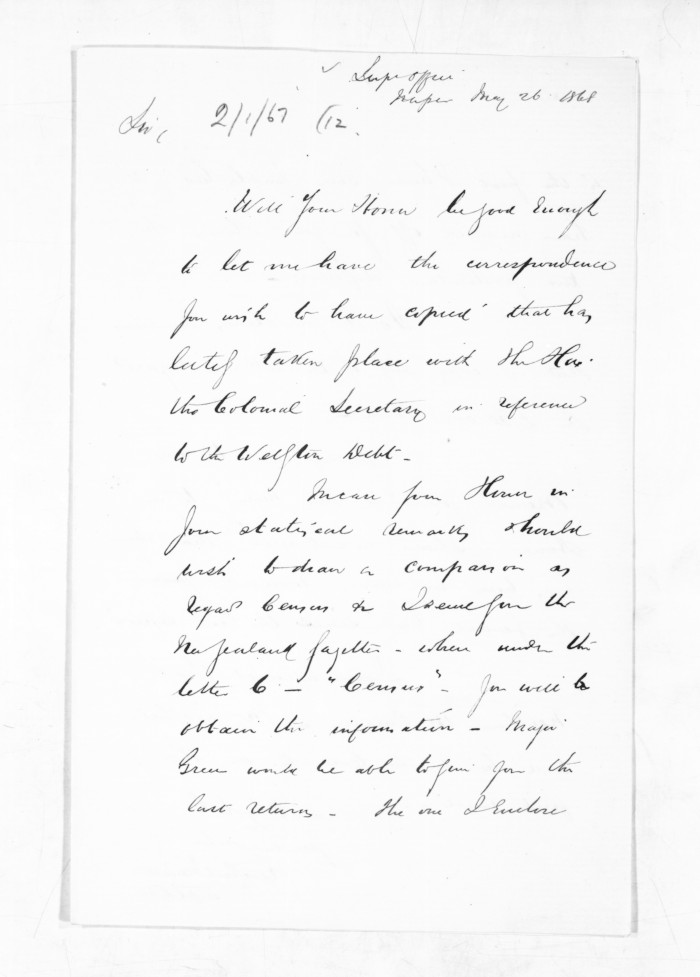 Supt office
Napier May 26 1868
Sir, 2/1/67 (12.
Will Your Honor be good Enough
to let me have the correspondence
you wish to have copied that has
lately taken place with the Hon.
the Colonial Secretary in reference
to the Welgton Debt -
In case your Honor in
your statistical remarks should
wish to draw a comparison as
regard Census &c I send you the
New Zealand Gazette - where under the
letter C - "Census" - you will be
obtain the information - Major
Green would be able to give you the
last returns - the one I Enclose